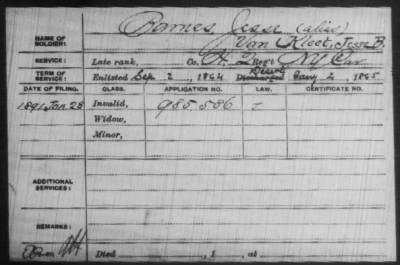 Barnes Jesse (alias)
NAME OF SOLDIER: Van Kleet, Jesse B.
SERVICE: Late rank, Co. H, 2 Reg't NY Cav
TERM OF SERVICE: Enlisted Sep 2, 1864 Desert Discharged Jany 2, 1865
DATE OF FILING. CLASS. APPLICATION NO. LAW. CERTIFICATE NO.
1891 Jan 28 Invalid, 985,586
Widow,
Minor,
ADDITIONAL SERVICES:
REMARKS:
Died , 1 , at